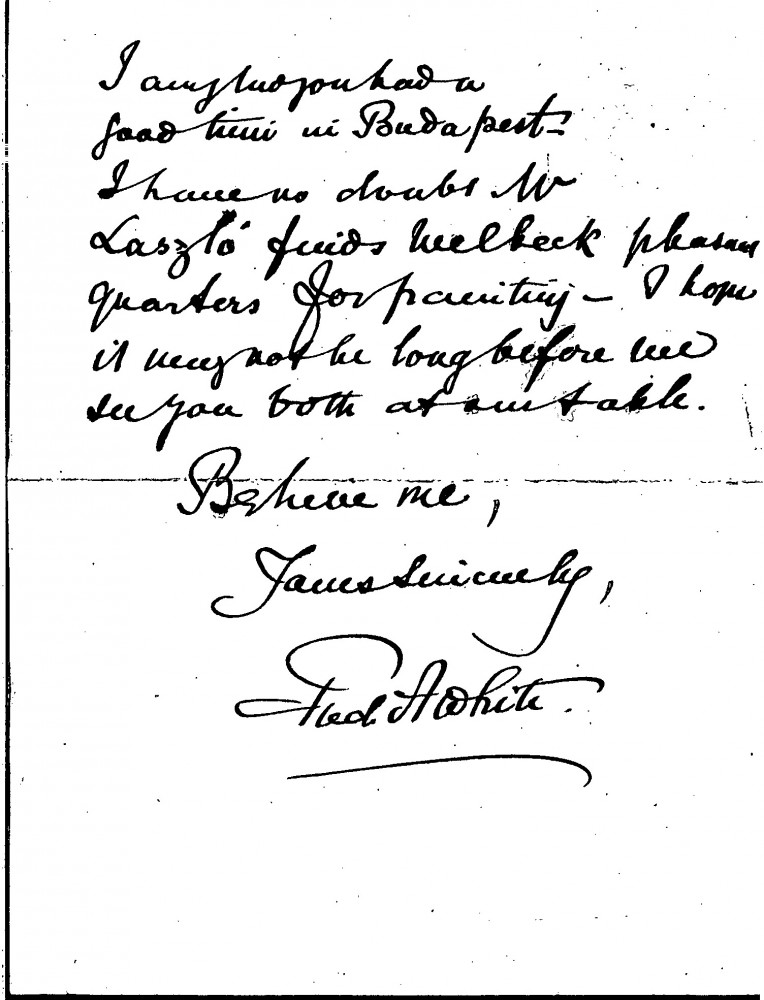 I am glad you had a
good time in Budapest –
I have no doubt Mr
László finds Welbeck pleasant
quarters for painting – I hope
it may not be long before we
see you both at our table.
Believe me,
Yours sincerely,
Fred A White.